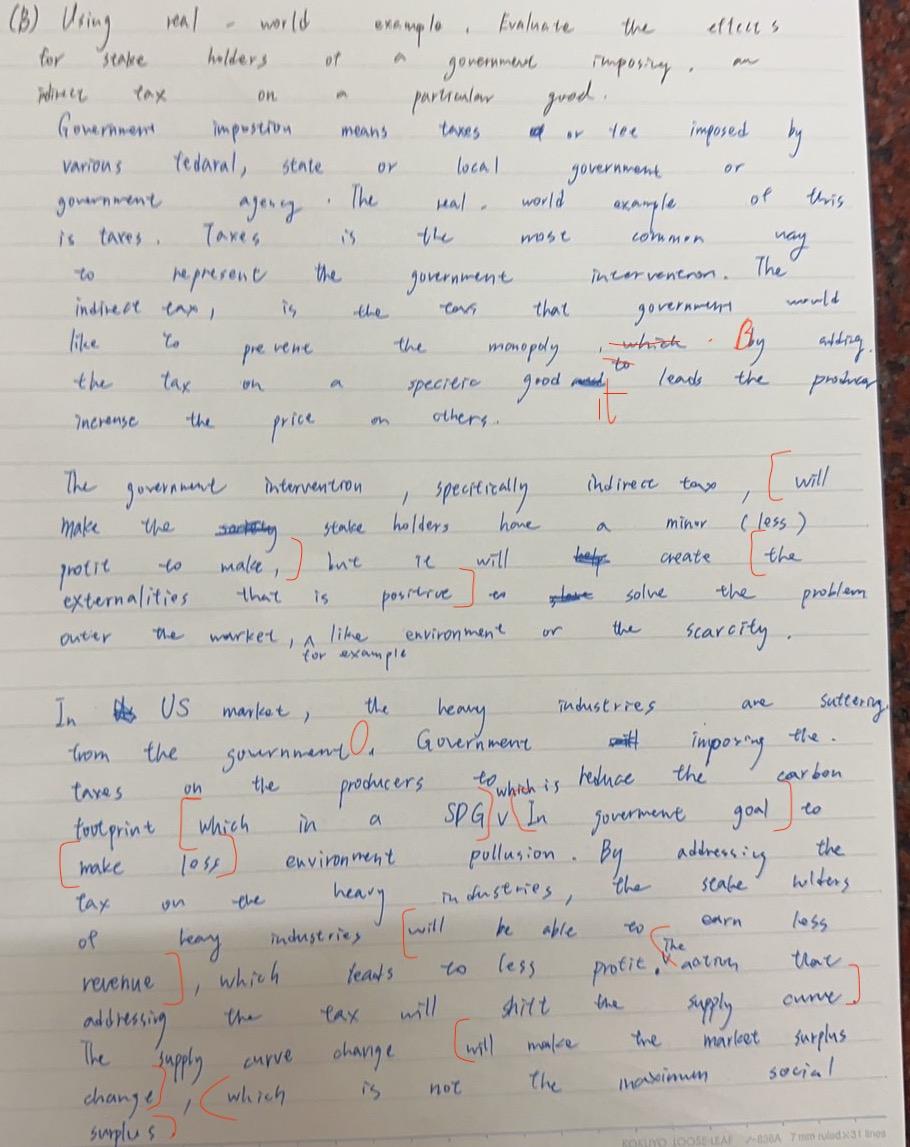 (B) Using real-world example. Evaluate the effects
for stake holders of a government imposing. an
indirect tax on a particular good.
Government impostion means taxes or fee imposed by
various fedaral, state or local government or
government agency. The real-world example of this
is taxes. Taxes is the most common way
to represent the government intervention. The
indirect tax, is the taxs that government would
like to prevent the monopoly, which. By adding.
the tax on a specific good to it leads the producer
increase the price on others.
The government intervention, specifically indirect tax, [will
make the stake holders have a minor (less)
profit to make,] but it will help create [the
externalities that is positive] to solve the problem
outer the market, for example like environment or the scarcity.
In US market, the heavy industries are suffering
from the government. Government imposing the.
taxes on the producers to reduce the carbon
footprint [which in a SDG] which is [In goverment goal] to
[make loss] environment pollusion. By addressing the
tax on the heavy industries, the stake holders
of heavy industries [will be able to earn less
revenue], which leads to less profit. [The action that
addressing the tax will shift the supply curve]
The supply curve change [will make the market surplus
change], (which is not the maximum social
surplus)
KOKUYO LOOSE-LEAF ノ-836A 7 mm ruled × 31 lines